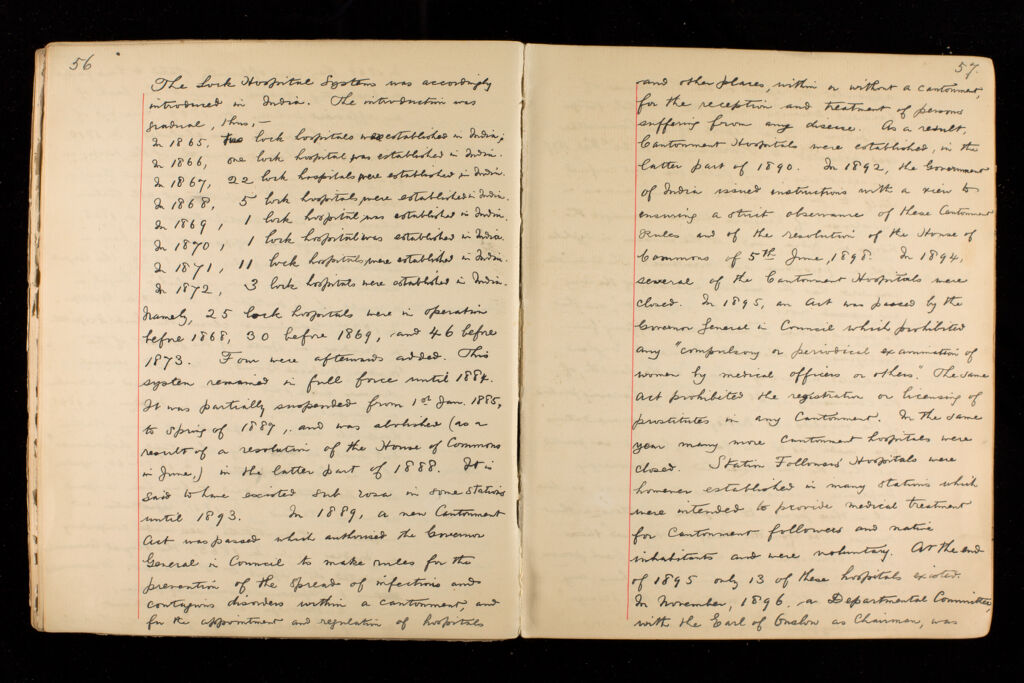 56
The Lock Hospital System was accordingly
introduced in India. The introduction was
gradual, thus,—
In 1865, two lock hospitals were established in India;
In 1866, one lock hospital was established in India.
In 1867, 22 lock hospitals were established in India.
In 1868, 5 lock hospitals were established in India.
In 1869, 1 lock hospital was established in India.
In 1870, 1 lock hospital was established in India.
In 1871, 11 lock hospitals were established in India.
In 1872, 3 lock hospitals were established in India.
Namely, 25 lock hospitals were in operation
before 1868, 30 before 1869, and 46 before
1873. Four were afterwards added. This
system remained in full force until 1884.
It was partially suspended from 1st Jan. 1885,
to Spring of 1887, and was abolished (as a
result of a resolution of the House of Commons
in June,) in the latter part of 1888. It is
said to have existed sub rosa in some stations
until 1893. In 1889, a new Cantonment
Act was passed which authorised the Governor
General in Council to make rules for the
prevention of the spread of infectious and
contagious disorders within a cantonment, and
for the appointment and regulation of hospitals
57.
and other places, within or without a cantonment,
for the reception and treatment of persons
suffering from any disease. As a result,
Cantonment Hospitals were established, in the
latter part of 1890. In 1892, the Government
of India issued instructions with a view to
ensuring a strict observance of these Cantonment
Rules and of the resolution of the House of
Commons of 5th June, 1898. In 1894,
several of the Cantonment Hospitals were
closed. In 1895, an Act was passed by the
Governor General in Council which prohibited
any "compulsory or periodical examination of
women by medical officers or others." The same
Act prohibited the registration or licensing of
prostitutes in any Cantonment. In the same
year many more Cantonment hospitals were
closed. Station Followers' Hospitals were
however established in many stations which
were intended to provide medical treatment
for Cantonment followers and native
inhabitants and were voluntary. At the end
of 1895 only 13 of these hospitals existed.
In November, 1896, a Departmental Committee,
with the Earl of Onslow as Chairman, was